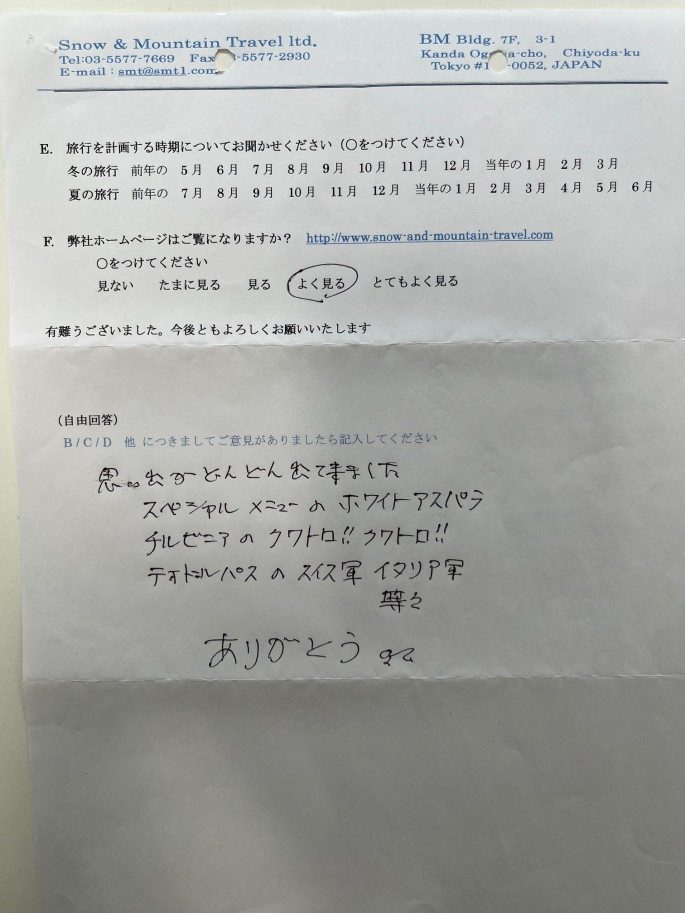 Snow & Mountain Travel ltd.
BM Bldg. 7F, 3-1
Tel:03-5577-7669 Fax -5577-2930
Kanda Oga a-cho, Chiyoda-ku
E-mail : smt@smt1.com
Tokyo #1 -0052, JAPAN
E. 旅行を計画する時期についてお聞かせください（○をつけてください）
冬の旅行 前年の 5月 6月 7月 8月 9月 10月 11月 12月 当年の1月 2月 3月
夏の旅行 前年の 7月 8月 9月 10月 11月 12月 当年の1月 2月 3月 4月 5月 6月
F. 弊社ホームページはご覧になりますか？ http://www.snow-and-mountain-travel.com
○をつけてください
見ない たまに見る 見る よく見る とてもよく見る
有難うございました。今後ともよろしくお願いいたします
（自由回答）
B/C/D 他 につきましてご意見がありましたら記入してください
思い出がどんどん出て来ました
スペシャル メニューの ホワイトアスパラ
チルビニアの クワトロ!! クワトロ!!
テオドルパスの スイス軍 イタリア軍
等々
ありがとう